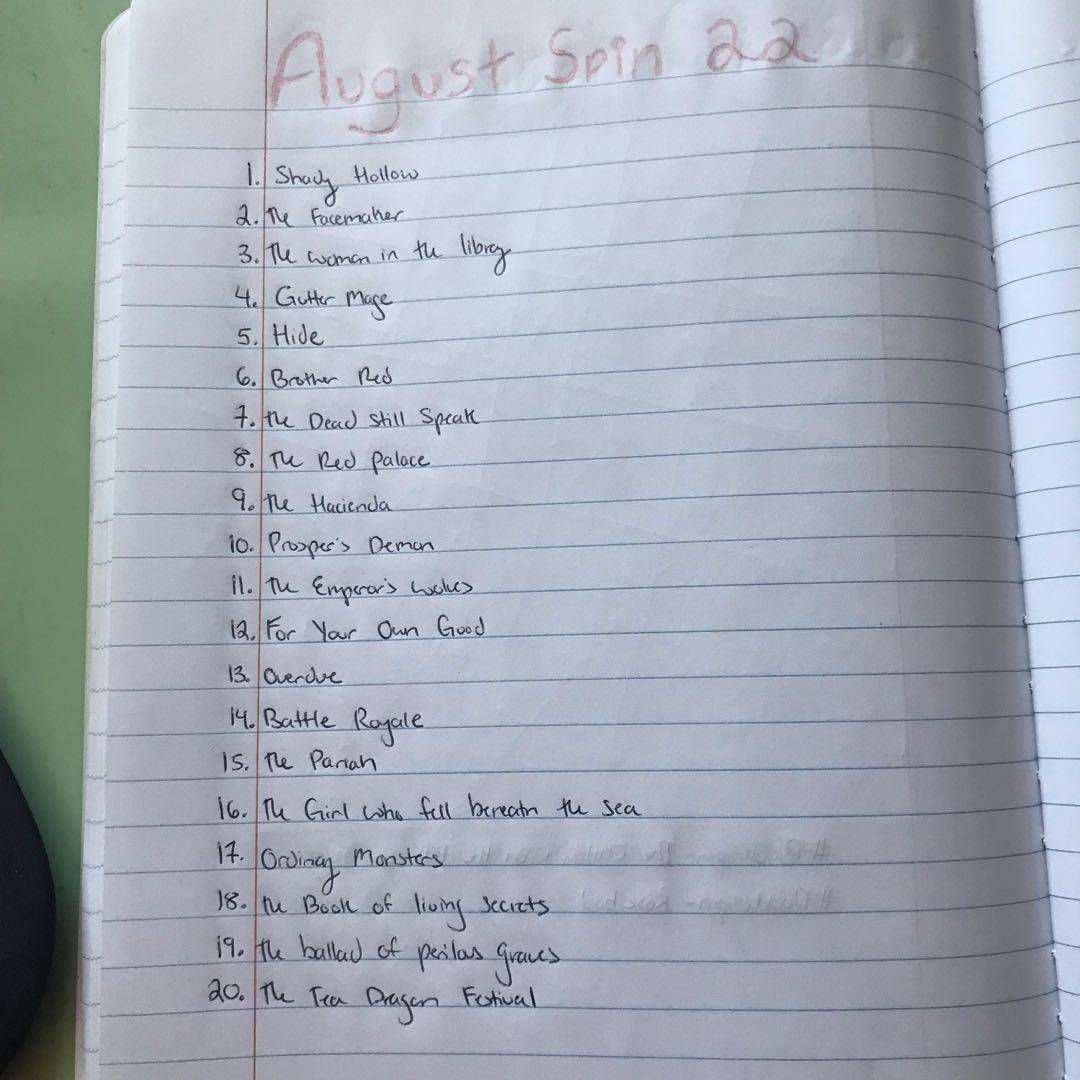 August Spin 22
1. Shady Hollow
2. The Facemaker
3. The woman in the library
4. Gutter Mage
5. Hide
6. Brother Red
7. The Dead Still Speak
8. The Red Palace
9. The Hacienda
10. Prosper's Demon
11. The Emperor's wolves
12. For Your Own Good
13. Overdue
14. Battle Royale
15. The Pariah
16. The Girl who fell beneath the sea
17. Ordinary Monsters
18. The Book of living secrets
19. The ballad of perilous graves
20. The Tea Dragon Festival